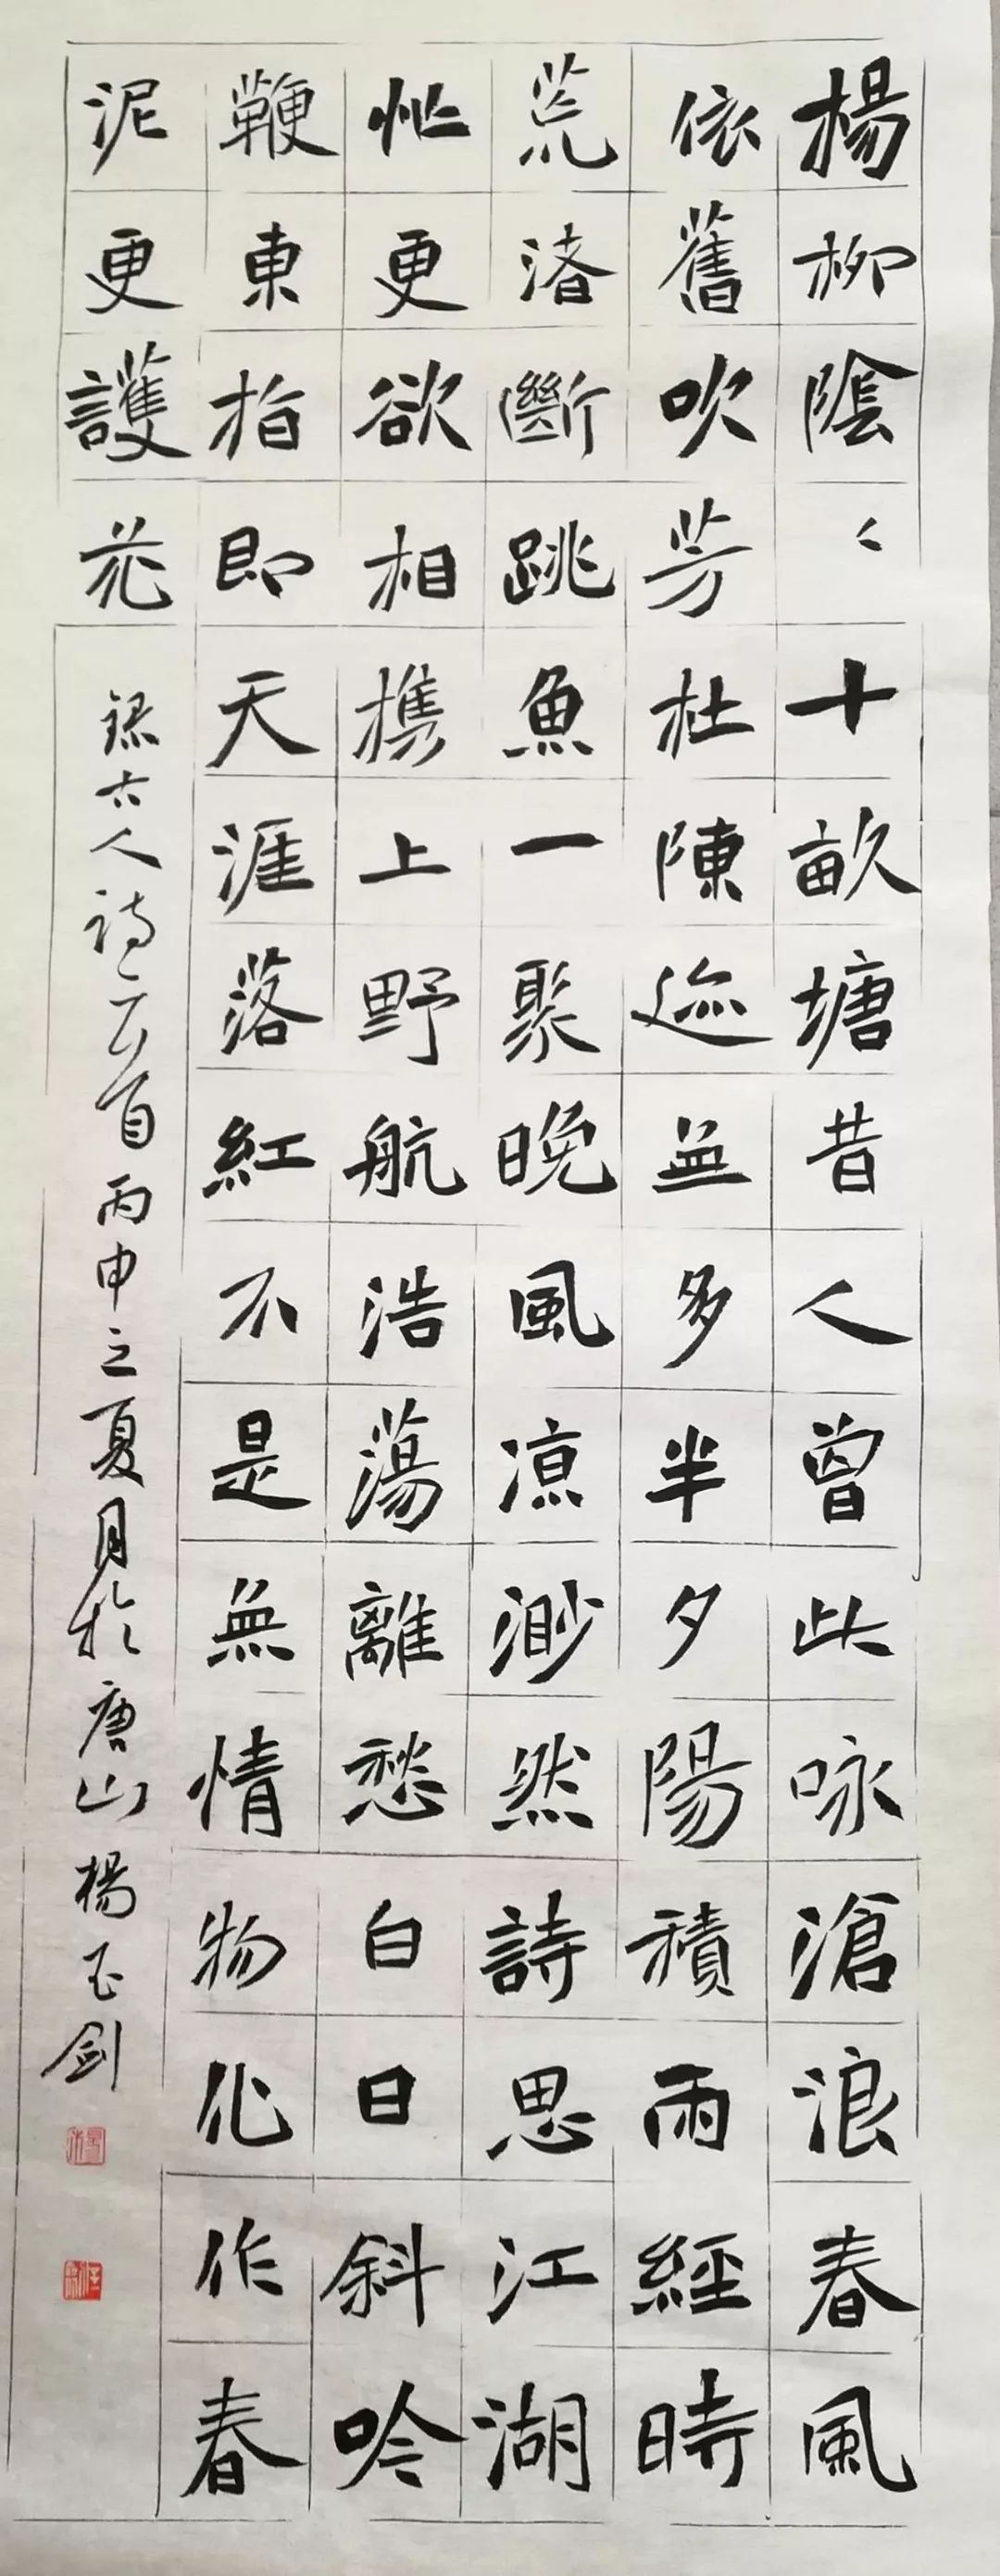 楊柳陰〻十畝塘昔人曾此咏滄浪春風
依舊吹芳杜陳迹益多半夕陽積雨經時
荒渚斷跳魚一聚晚風涼渺然詩思江湖
近更欲相攜上野航浩蕩離愁白日斜吟
鞭東指即天涯落紅不是無情物化作春
泥更護花
錄古人詩二首丙申之夏月於唐山楊玉劍